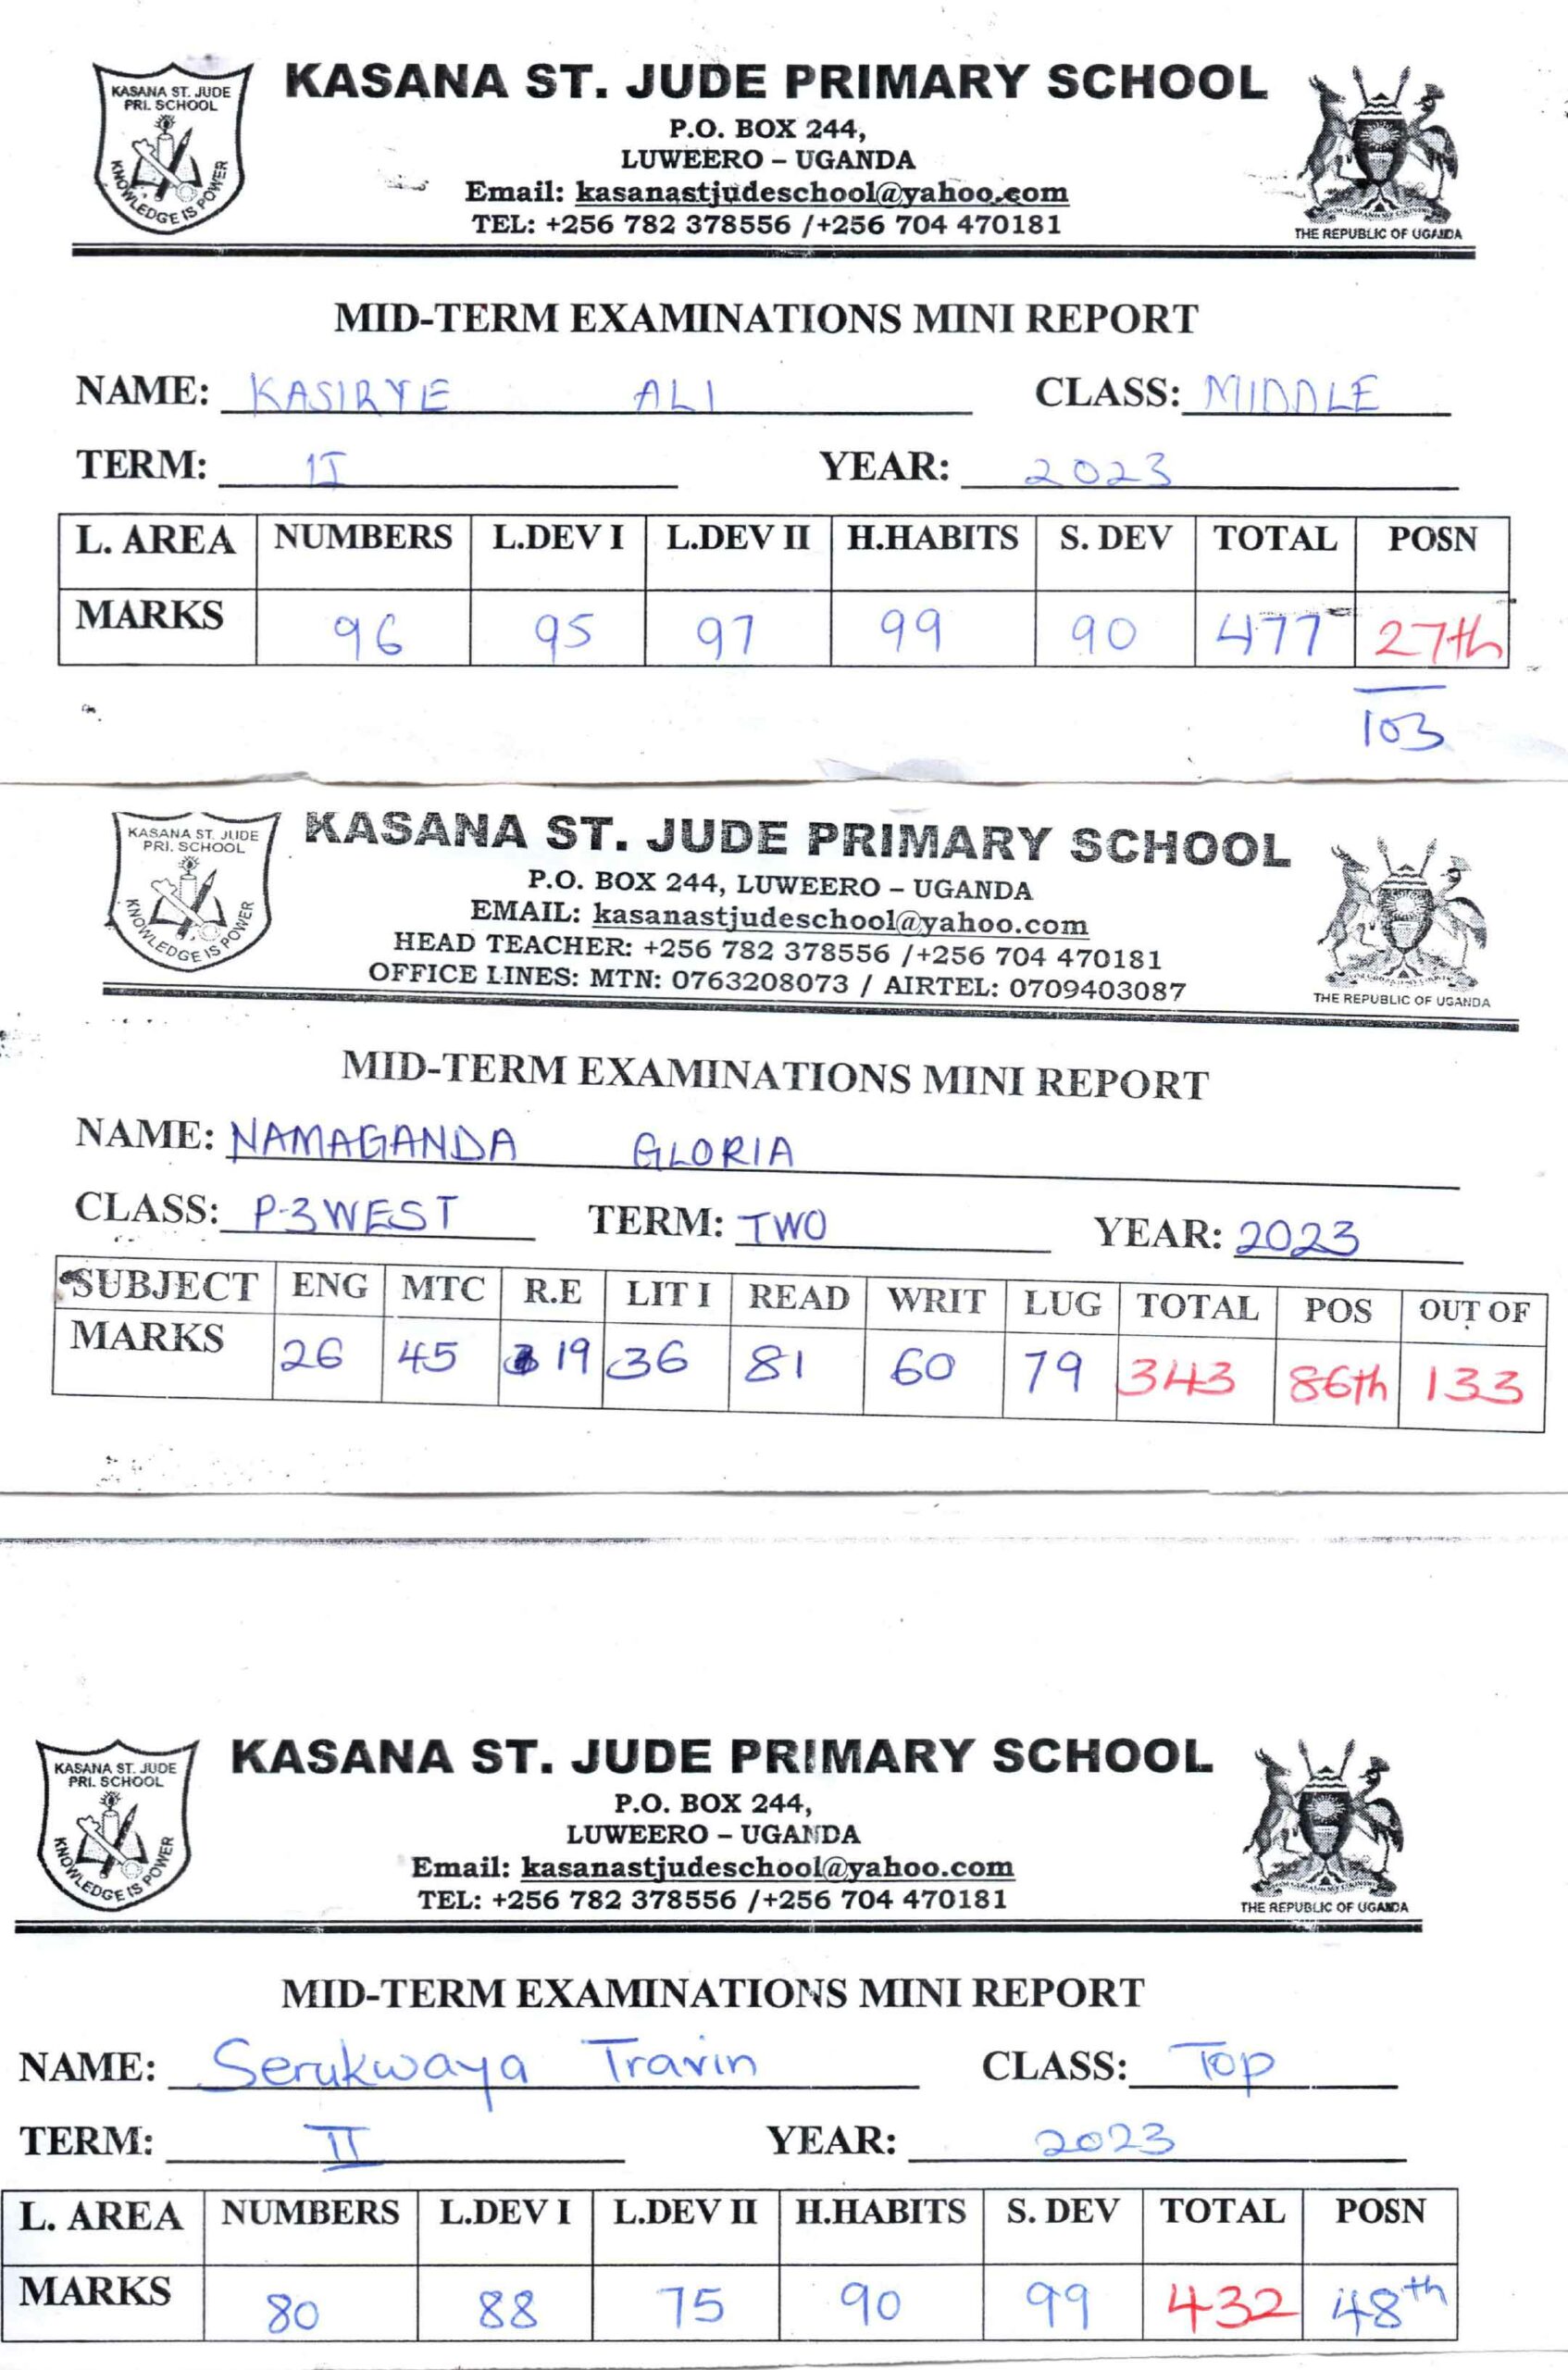 KASANA ST. JUDE
PRI. SCHOOL
KNOWLEDGE IS POWER
KASANA ST. JUDE PRIMARY SCHOOL
P.O. BOX 244,
LUWEERO – UGANDA
Email: kasanastjudeschool@yahoo.com
TEL: +256 782 378556 /+256 704 470181
THE REPUBLIC OF UGANDA
MID-TERM EXAMINATIONS MINI REPORT
NAME: KASIRYE ALI CLASS: MIDDLE
TERM: II YEAR: 2023
L. AREA NUMBERS L.DEV I L.DEV II H.HABITS S. DEV TOTAL POSN
MARKS 96 95 97 99 90 477 27th
103
KASANA ST. JUDE
PRI. SCHOOL
KNOWLEDGE IS POWER
KASANA ST. JUDE PRIMARY SCHOOL
P.O. BOX 244, LUWEERO – UGANDA
EMAIL: kasanastjudeschool@yahoo.com
HEAD TEACHER: +256 782 378556 /+256 704 470181
OFFICE LINES: MTN: 0763208073 / AIRTEL: 0709403087
THE REPUBLIC OF UGANDA
MID-TERM EXAMINATIONS MINI REPORT
NAME: NAMAGANDA GLORIA
CLASS: P-3WEST TERM: TWO YEAR: 2023
SUBJECT ENG MTC R.E LIT I READ WRIT LUG TOTAL POS OUT OF
MARKS 26 45 19 36 81 60 79 343 86th 133
KASANA ST. JUDE
PRI. SCHOOL
KNOWLEDGE IS POWER
KASANA ST. JUDE PRIMARY SCHOOL
P.O. BOX 244,
LUWEERO – UGANDA
Email: kasanastjudeschool@yahoo.com
TEL: +256 782 378556 /+256 704 470181
THE REPUBLIC OF UGANDA
MID-TERM EXAMINATIONS MINI REPORT
NAME: Serukwaya Travin CLASS: Top
TERM: II YEAR: 2023
L. AREA NUMBERS L.DEV I L.DEV II H.HABITS S. DEV TOTAL POSN
MARKS 80 88 75 90 99 432 48th